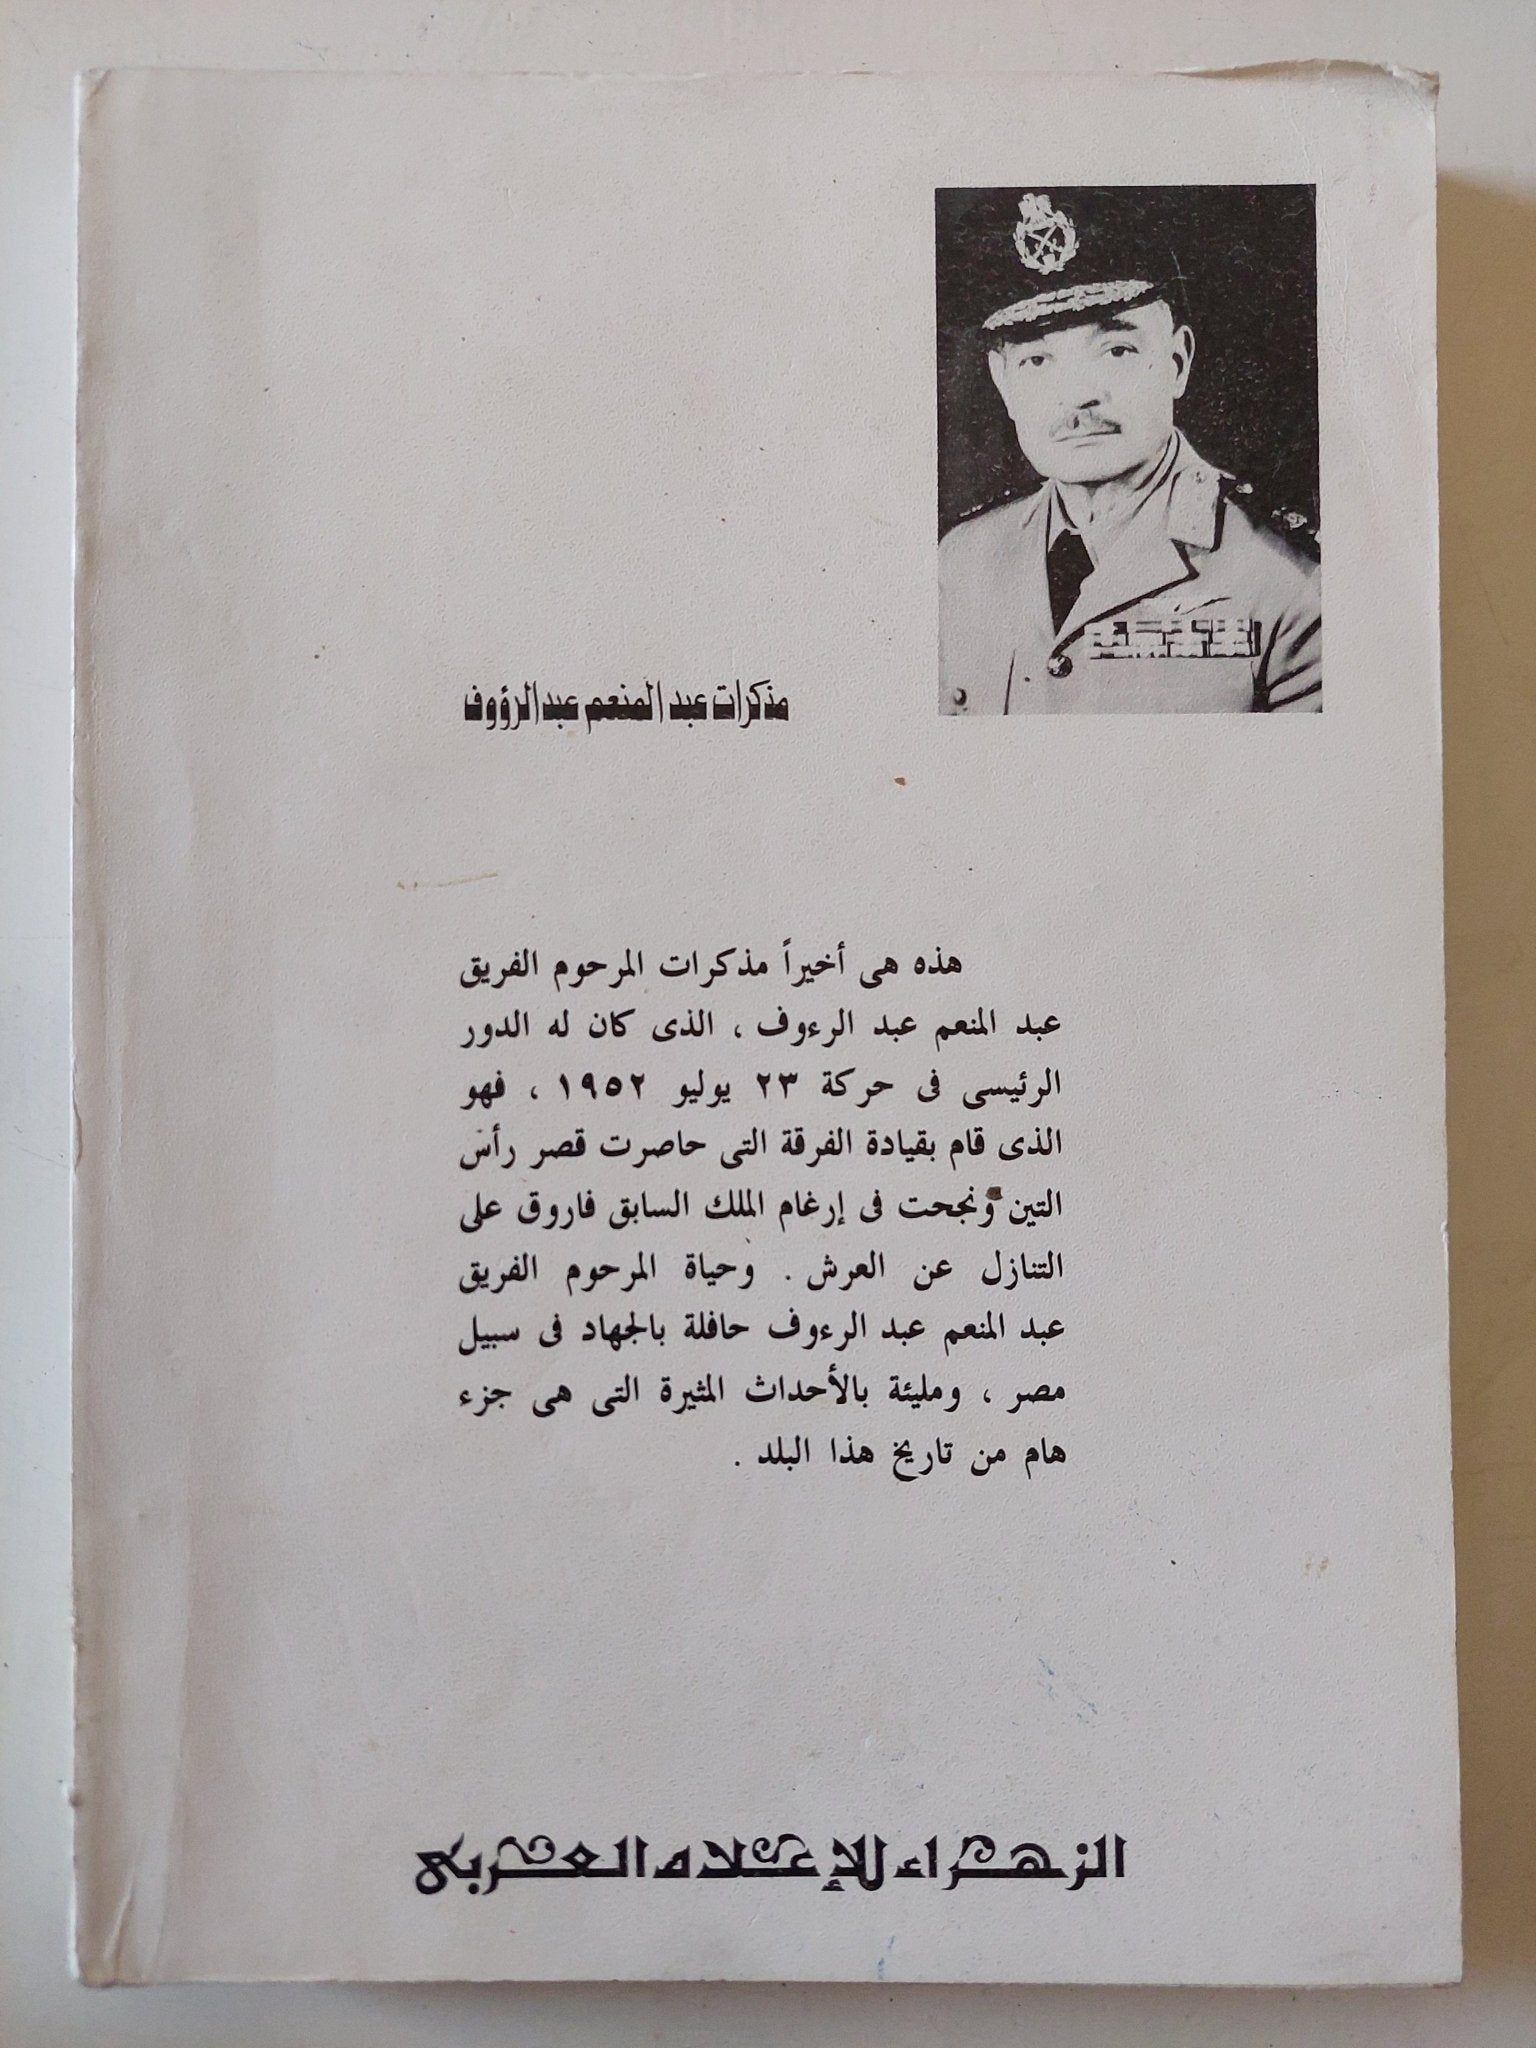 مذكرات عبد المنعم عبد الرؤوف
هذه هى أخيراً مذكرات المرحوم الفريق
عبد المنعم عبد الرءوف ، الذى كان له الدور
الرئيسى فى حركة ٢٣ يوليو ١٩٥٢ ، فهو
الذى قام بقيادة الفرقة التى حاصرت قصر رأس
التين ونجحت فى إرغام الملك السابق فاروق على
التنازل عن العرش . وحياة المرحوم الفريق
عبد المنعم عبد الرءوف حافلة بالجهاد فى سبيل
مصر ، ومليئة بالأحداث المثيرة التى هى جزء
هام من تاريخ هذا البلد .
الزهراء للإعلام العربى